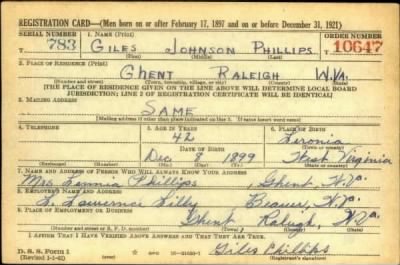 REGISTRATION CARD—(Men born on or after February 17, 1897 and on or before December 31, 1921)
SERIAL NUMBER 1. NAME (Print) ORDER NUMBER
783 GILES JOHNSON PHILLIPS 10647
(First) (Middle) (Last)
2. PLACE OF RESIDENCE (Print)
GHENT RALEIGH W.VA.
(Number and street) (Town, township, village, or city) (County) (State)
[THE PLACE OF RESIDENCE GIVEN ON THE LINE ABOVE WILL DETERMINE LOCAL BOARD
JURISDICTION; LINE 2 OF REGISTRATION CERTIFICATE WILL BE IDENTICAL]
3. MAILING ADDRESS
SAME
[Mailing address if other than place indicated on line 2. If same insert word same]
4. TELEPHONE 5. AGE IN YEARS 6. PLACE OF BIRTH
42
DATE OF BIRTH (Town or county)
Dec 1899 West Virginia
(Exchange) (Number) (Mo.) (Day) (Yr.) (State or country)
7. NAME AND ADDRESS OF PERSON WHO WILL ALWAYS KNOW YOUR ADDRESS
Mrs. Phillips, Ghent, W.Va.
8. EMPLOYER'S NAME AND ADDRESS
Lilly Beaver, W.Va.
9. PLACE OF EMPLOYMENT OR BUSINESS
Ghent Raleigh, W.Va.
(Number and street or R. F. D. number) (Town) (County) (State)
I AFFIRM THAT I HAVE VERIFIED ABOVE ANSWERS AND THAT THEY ARE TRUE.
D. S. S. Form 1 Giles Phillips
(Revised 1-1-42) (Registrant's signature)